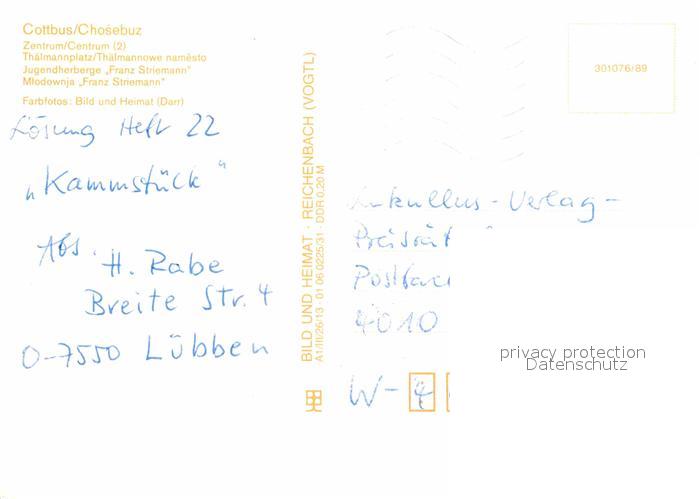 Cottbus/Chośebuz
Zentrum/Centrum (2)
Thälmannplatz/Thälmannowe naměsto
Jugendherberge „Franz Striemann"
Młodownja „Franz Striemann"
Farbfotos: Bild und Heimat (Darr)
Lösung Heft 22
„Kammstück"
Abs. H. Rabe
Breite Str. 4
O-7550 Lübben
BILD UND HEIMAT · REICHENBACH (VOGTL)
A1/III/26/13 · 01 06 0225/31 · DDR 0,20 M
301076/89
Lukullus-Verlag-
4010
W-4
privacy protection
Datenschutz